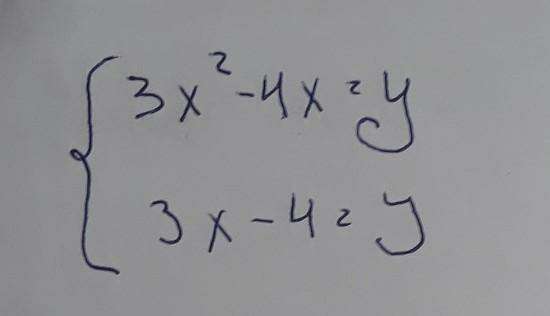 3x²-4x=y
3x-4=y